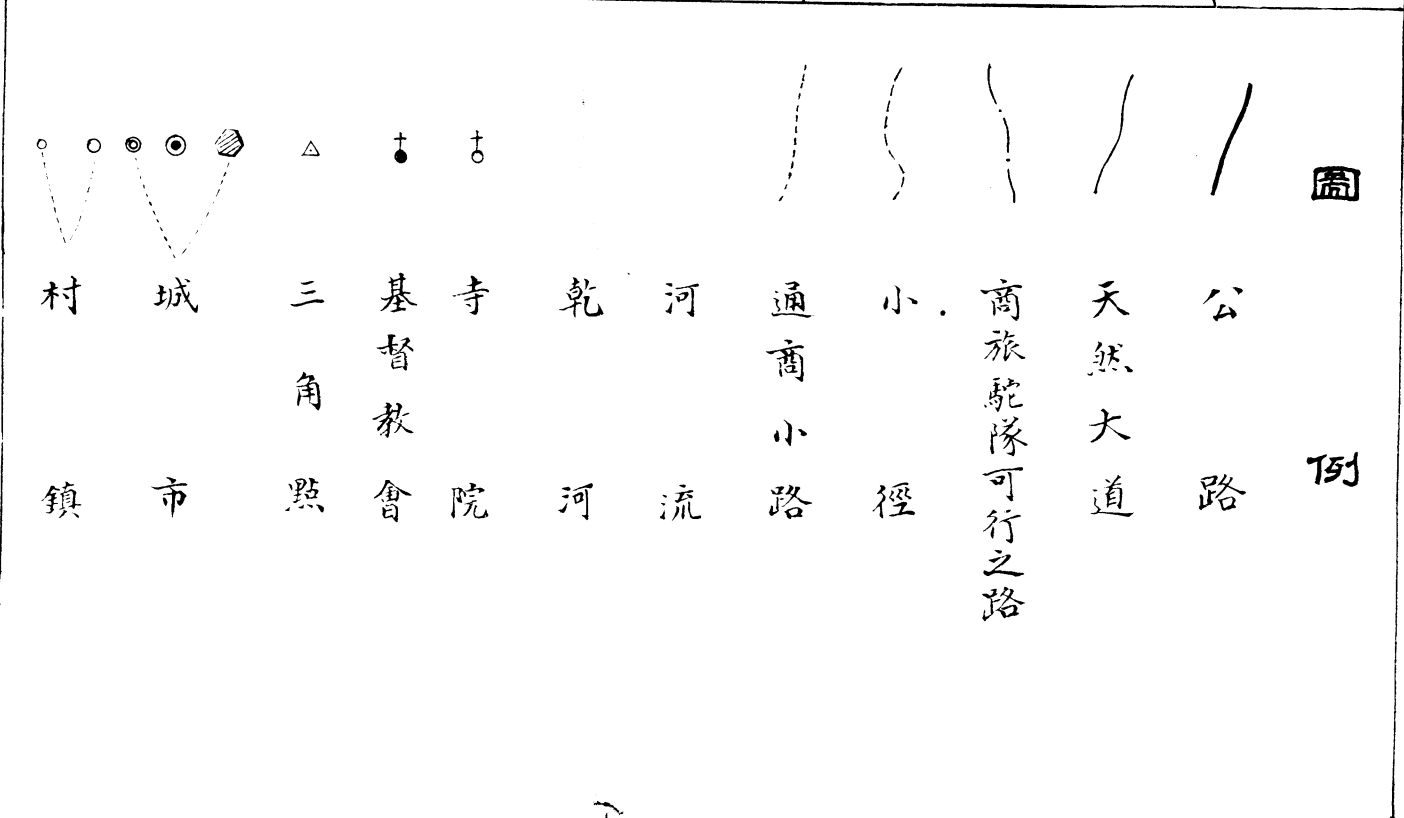 圖例
公路
天然大道
商旅駝隊可行之路
小徑
通商小路
河流
乾河
寺院
基督教會
三角點
城市
村鎮